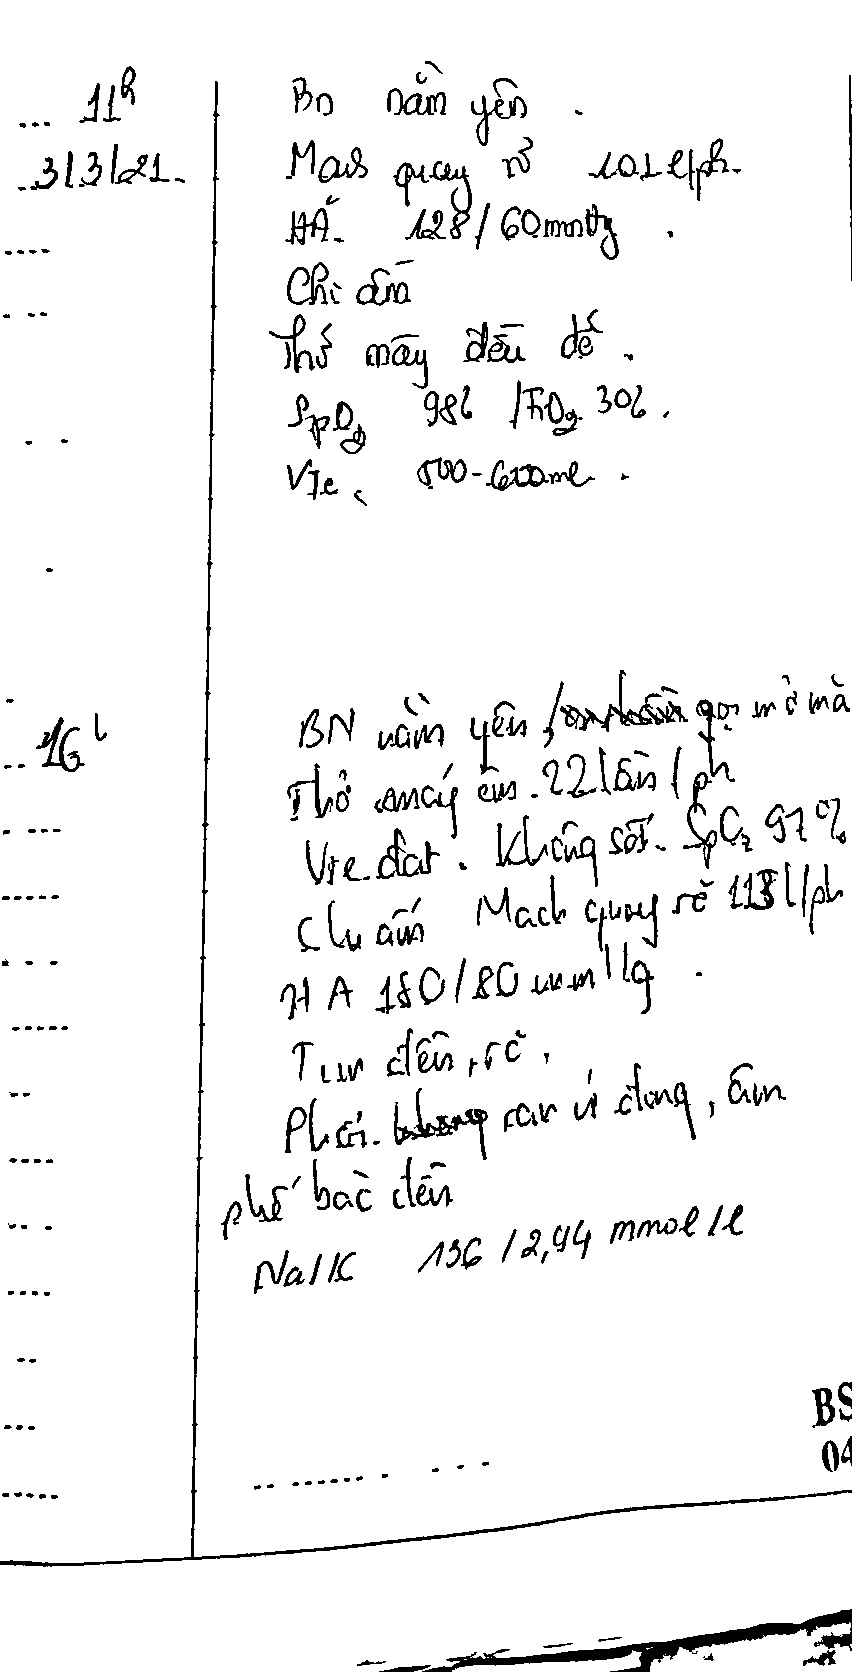 11h
3/3/21
Bn nằm yên.
Mạch quay rõ 101 l/ph.
HA. 128/60mmHg.
Chi ấm
Thở máy đều dễ.
SpO2 98% /FiO2 30%.
Vte 500-600ml.
16h
BN nằm yên, gọi mở mắ
Thở máy êm. 22 lần/ph
Vte đạt. Không sốt. SpO2 97%
Chi ấm Mạch quay rõ 113 l/ph
HA 180/80 mmHg.
Tim đều, rõ,
Phổi. ran ứ đọng, âm
phế bào đều
Na/K 136/2,94 mmol/l
BS
04